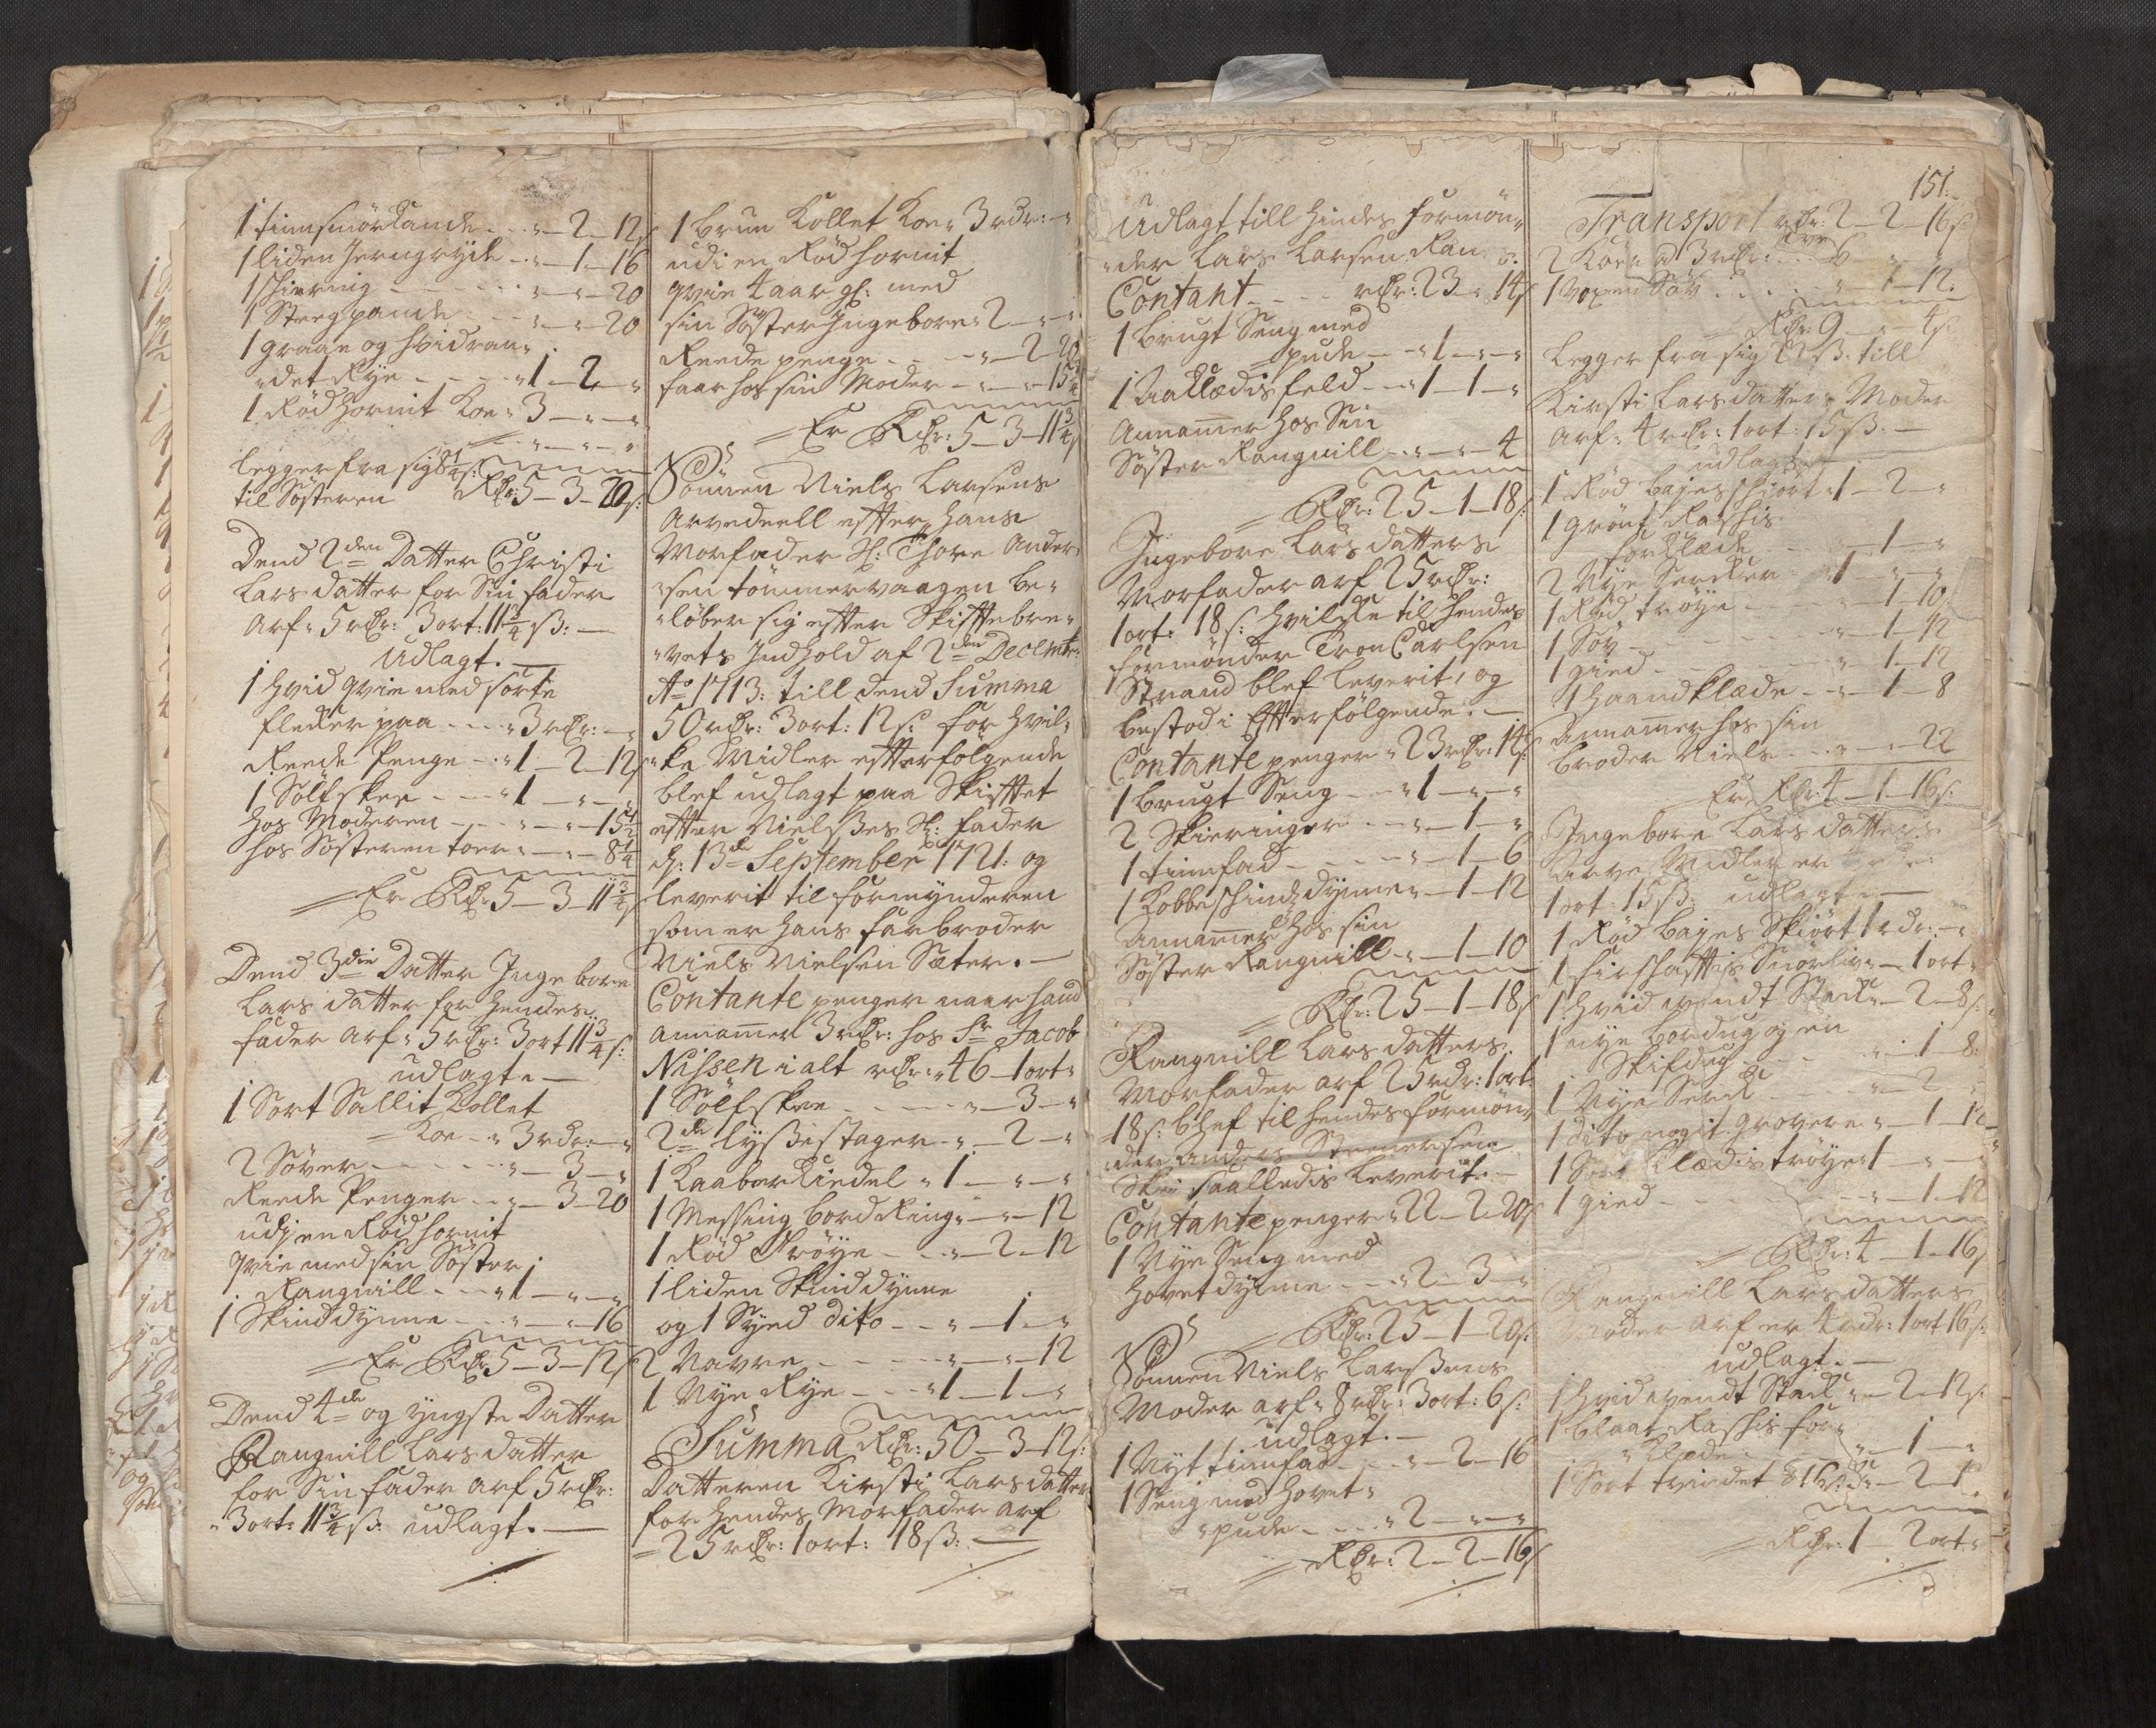 1 tinnsmörkande - - „ 2 - 12 s
1 liden Jerngryde - „ - 1 - 16
1 Skiering - - - - „ - „ - 20
1 Steegpande - - „ - „ - 20
1 graae og hvidran„
„det Rye - - - - „ 1 - 2 - „
1 Rød Hornit Koe „ 3 - „ - „
„ - „ - „
legger fra sig 8 1/4 s:
til Søsteren Rdr: 5 - 3 - 20 s:
Dend 2den Datter Christi
Lars datter for Sin fader
Arf „ 5 rdr: 3 ort: 11 3/4 ß: —
Udlagt. —
1 hvid qvie med sorte
flecker paa - - - „ 3 rdr: - „
Reede Penge - - „ 1 - 2 - 12 s
1 Sölfskee - - - „ 1 - „ - „
hos Moderen - „ - „ - 15 1/2
hos Søsteren toer „ - „ - 8 1/4
Er Rdr 5 - 3 - 11 3/4 s
Dend 3die Datter Ingebore
Lars datter for hendes
fader Arf „ 5 rdr: 3 ort 11 3/4 s:
udlagt. —
1 Sort Sallit Kollet
Koe - „ 3 rdr: - „
2 Søver - - - - - „ - 3 - „
Reede Penger - - „ - 3 - 20
udj en Rød hornit
qvie med sin Søster
Rangnill - - - „ 1 - „ - „
1 Skinddynne - - „ - „ - 16
Er Rdr 5 - 3 - 12 s
Dend 4de og yngste Datter
Rangnill Lars datter
for Sin fader Arf 5 rdr:
„ 3 ort: 11 3/4 ß: udlagt. —
1 Brun Kollet Koe „ 3 rdr: - „
udi en Rød hornit
qvie 4 aar gl: med
sin Søster Ingebore „ 2 - „ - „
Reede penge - - - „ - 2 - 20
faar hos sin Moder - „ - „ - 15 1/4
Er Rdr: 5 - 3 - 11 3/4 s
Sønnen Niels Larsens
Arvedeell efter hans
Morfader Sl: Thore Ander„
„sen tømmervaagen be„
„løber sig efter Skiftebre„
„vets Indhold af 2den Decembr:
Ao 1713: till dend Summa
50 rdr: 3 ort: 12 s: for hvil„
„ke Midler efterfølgende
blef udlagt paa Skiftet
efter Nielßes Sl: fader
d: 13de September 1721: og
leverit til formynderen
som er hans farbroder
Niels Nielsen Sæter. —
Contante penger naar hand
annammer 3 rdr: hos Sr Jacob
Nissen i alt rdr: „ 46 - 1 ort „
1 Sölfskee - - - - „ - 3 - „
2de lyßestager - „ - 2 - „
1 Kaaberkiedel „ 1 - „ - „
1 Messing bord Ring „ - „ - 12
1 Rød Trøye - - - „ - 2 - 12
1 liden Skinddynne
og 1 Syed dito - - „ - 1 - „
2 Navre - - - - - „ - „ - 12
1 Nye Rye - - - „ 1 - 1 - „
Summa Rdr: 50 - 3 - 12 s:
Datteren Kirsti Larsdatter
for hendes Morfader arf
25 rdr: 1 ort: 18 ß: —
Udlagt till hindes formøn„
„der Lars Larsen
Contant - - - - rdr: 23 „ 14 s
1 brugt Seng med
pude - - „ 1 - „ - „
1 Aaklædis feld - - „ 1 - 1 - „
Annammer hos Sin
Søster Rangnill - „ - „ - 4
Rdr: 25 - 1 - 18 s:
Ingebore Lars datters
Morfader arf 25 rdr:
1 ort: 18 s: hvilke til hendes
formønder Tron Carlsen
Strand blef leverit, og
bestod i Efterfølgende. —
Contante penger „ 23 rdr: 14 s:
1 brugt Seng - - „ 1 - „ - „
2 Skieringer - - „ - 1 - „
1 tinnfad - - - - „ - 1 - 6
1 Kobbeskindz dynne „ - 1 - 12
Annammer hos sin
Søster Rangnill - „ - 1 - 10
Rdr: 25 - 1 - 18 s
Rangnill Lars datters
Morfader arf 25 rdr: 1 ort:
18 s: blef til hendes formøn„
„der Anders Steenersen
saalledis leverit. —
Contante penger „ 22 - 2 - 20 s
1 Nye Seng med
Hovetdynne - - - „ 2 - 3 - „
Rdr: 25 - 1 - 20 s:
Sønnen Niels Larßens
Moder arf „ 8 rdr: 3 ort: 6 s:
udlagt. —
1 Nyt tinnfad - - - „ - 2 - 16
1 Seng med Hovet„
„pude - - - - „ 2 - „ - „
Rdr: 2 - 2 - 16 s
151.
Transport rdr: 2 - 2 - 16 s:
2 Kører a 3 rdr: - - - 6 „ „
1 voxen Søv - - - - „ - 1 - 12.
Rdr: 9 - „ - 4 s:
legger fra sig 22 ß: till
Kirsti Larsdatter „ Moder
Arf „ 4 rdr: 1 ort: 15 ß: —
udlagt
1 Rød bajes skiørt „ 1 - 2 - „
1 grønt Raskis
forklæde - - - „ - 1 - „
2 Nye Sercker - - „ 1 - „ - „
1 Rød trøye - - - - - 1 - 10
1 Søv - - - - - „ - 1 - 12
1 gied - - - - - „ - 1 - 12
1 Haandklæde - - „ - 1 - 8
Annammer hos sin
broder Niels - - - „ - „ - 22
Er Rdr: 4 - 1 - 16 s:
Ingebore Lars datters
Arve Midler er
1 ort: 15 ß: udlagt „ —
1 Rød bajes Skiørt 1 rdr: - „
1 Snørliv „ - 1 ort „
1 hvid vendt Stack „ - 2 - 8 s:
1 nye bordug og en
Skifdug - - - - „ - 1 - 8
1 Nye Serck - - - „ - 2 „
1 dito nogit grovere „ - 1 - 12
1 Sort Klædis trøye „ 1 - „ -
1 gied - - - - - - „ - 1 - 12
Rdr: 4 - 1 - 16 s
Rangnill Larsdatters
Moder Arf er 4 rdr: 1 ort 16 s:
udlagt. —
1 hvid vendt Stack „ - 2 - 12 s:
1 blaat Raskis for„
„klæde - - - - „ - 1 - „
1 Sort tvindet Stack „ - 2 -
Rdr: 1 - 2 ort „